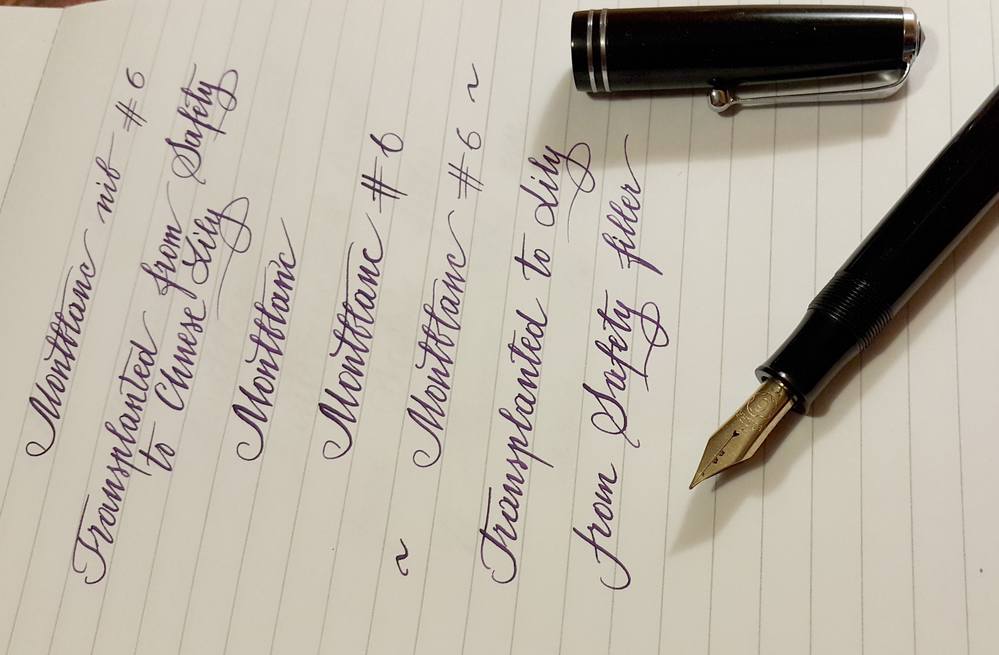 Montblanc nib # 6
Transplanted from Safety
to Chinese Lily
Montblanc
Montblanc # 6
~ Montblanc # 6 ~
Transplanted to Lily
from Safety filler